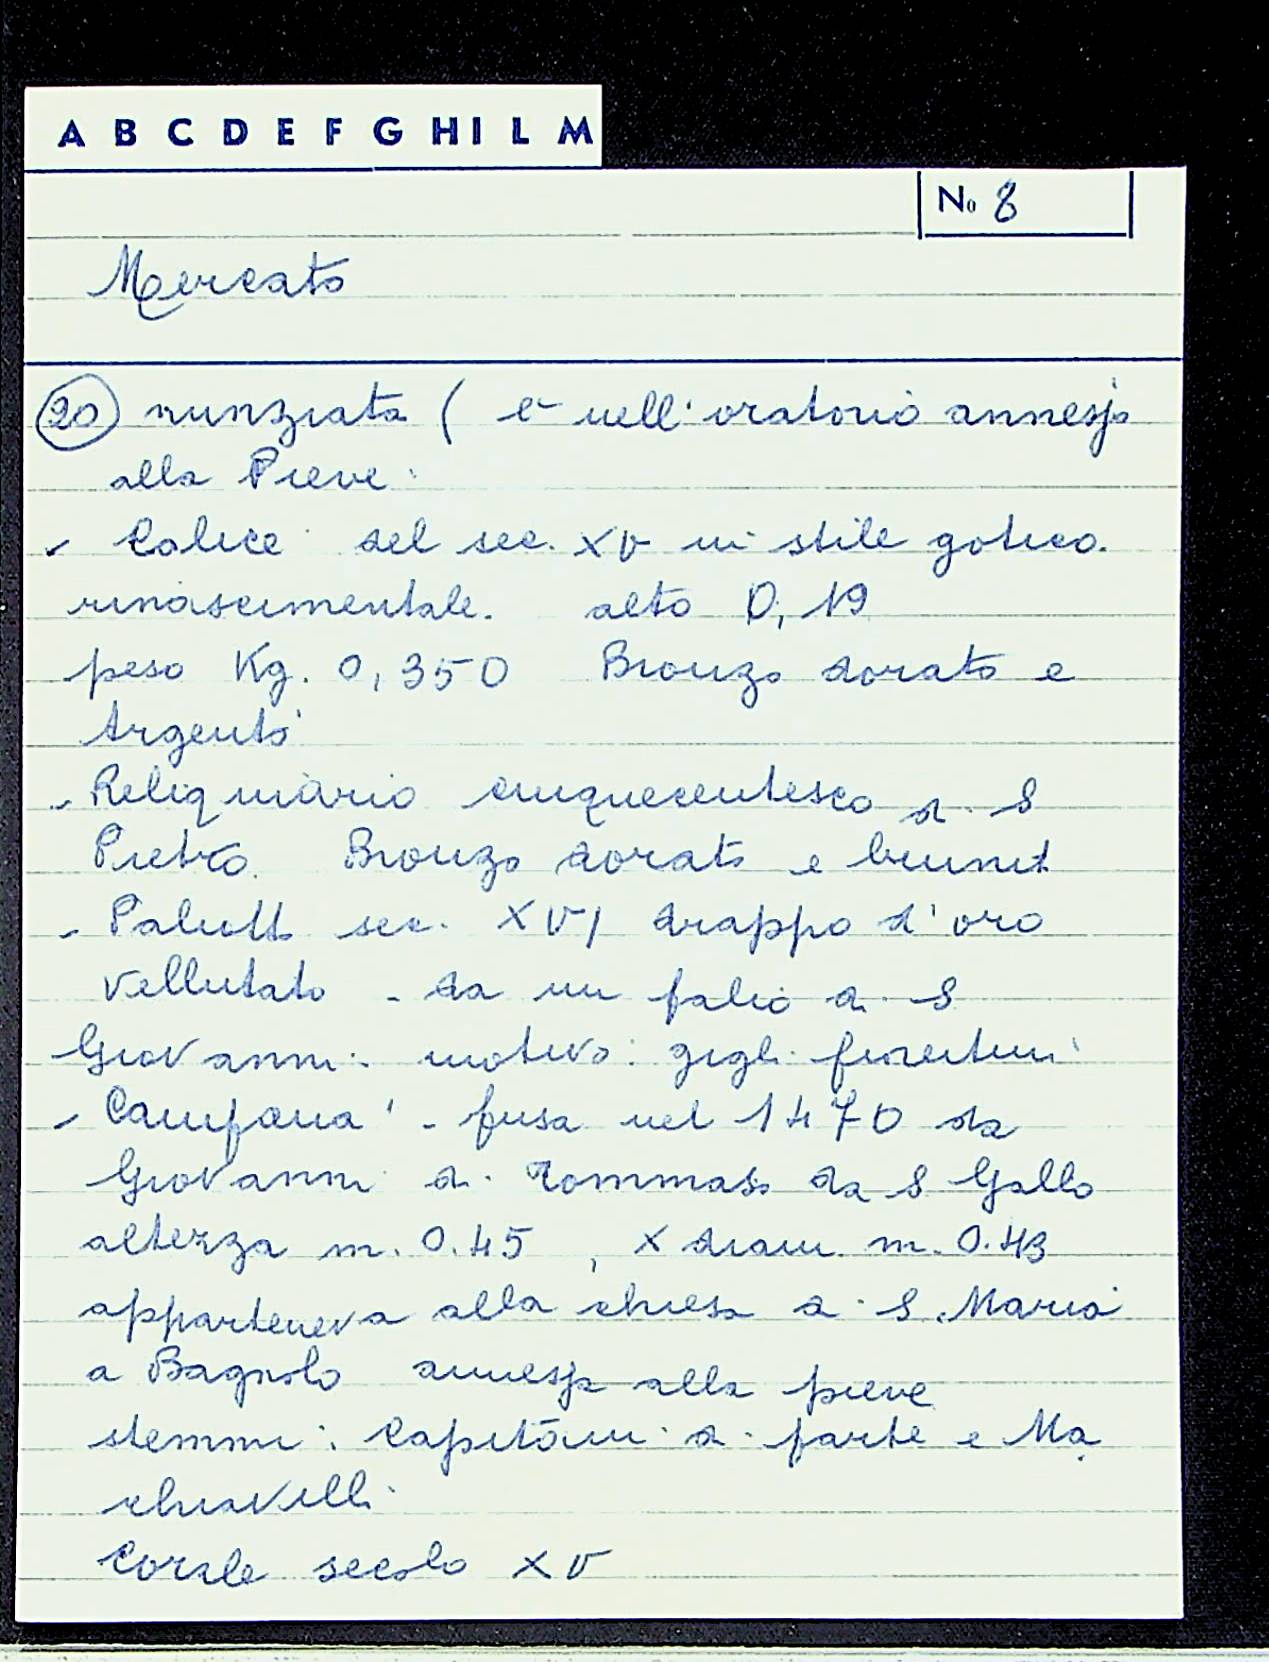 A B C D E F G H I L M
No 8
Mercato
20 nunziata ( è nell'oratorio annesso
alla Pieve.
- Calice del sec. XV in stile gotico.
rinascimentale. alto 0,19
peso Kg. 0,350 Bronzo dorato e
Argento
- Reliquiario cinquecentesco di S
Pietro. Bronzo dorato e brunit
- Paliott sec. XVI drappo d'oro
vellutato - da un palio di S
Giovanni. motivo: gigli fiorentini
- Campana - fusa nel 1470 da
Giovanni di Tommaso da S Gallo
altezza m. 0.45, x diam. m. 0.43
apparteneva alla chiesa di S. Maria
a Bagnolo annessa alla pieve
stemmi: Capitani di parte e Ma
chiavelli.
Corale secolo XV